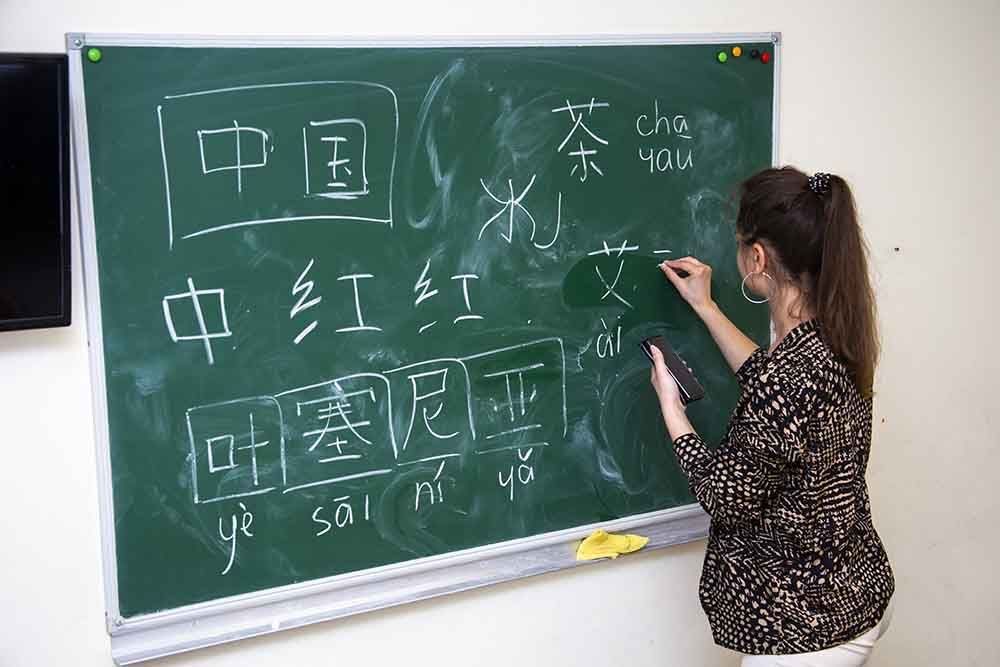 中国
茶 cha
чай
水
中 红 红
艾 一
ài
叶 塞 尼 亚
yè sāi ní yǎ